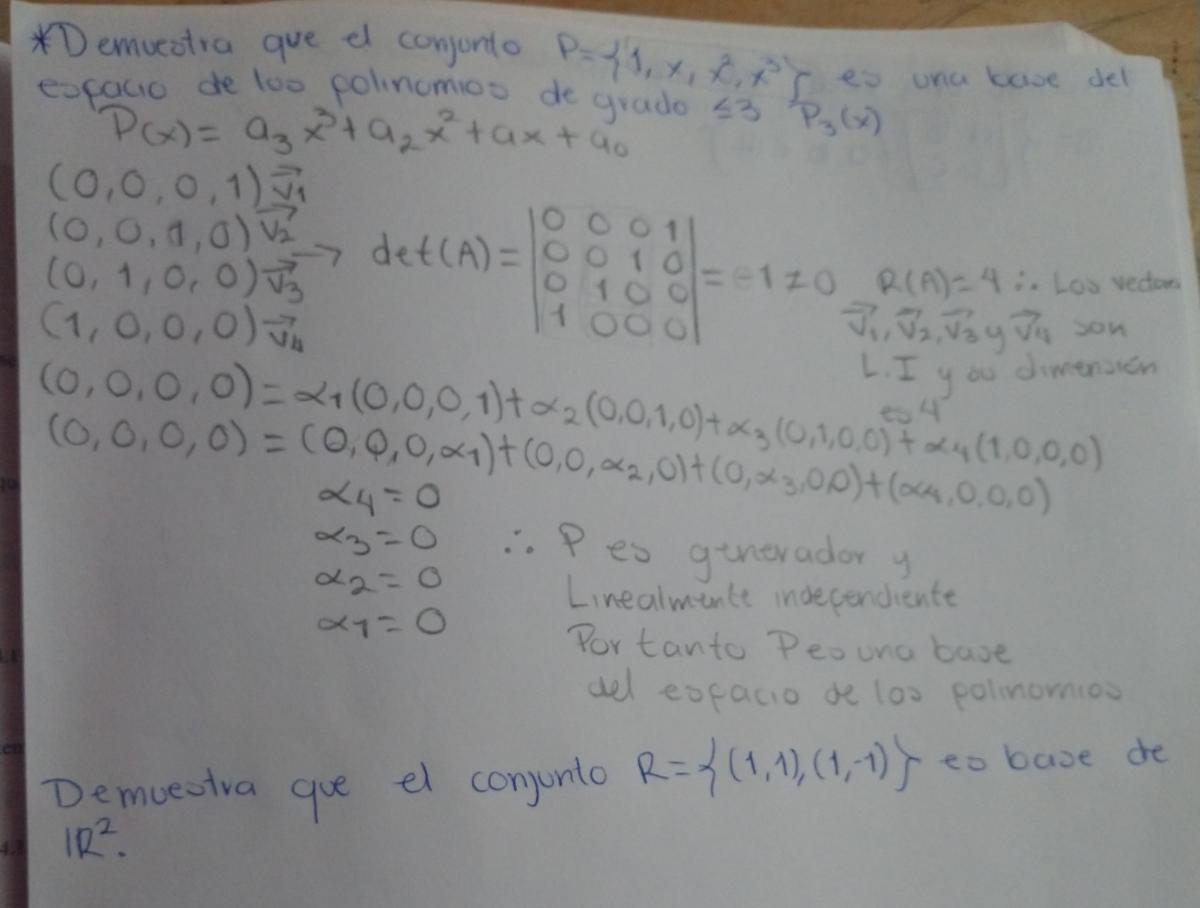 *Demuestra que el conjunto P={1, x, x², x³} es una base del
espacio de los polinomios de grado ≤3 P₃(x)
P(x) = a₃x³+a₂x²+ax+a₀
(0,0,0,1) v⃗₁
(0,0,1,0) v⃗₂
(0,1,0,0) v⃗₃
(1,0,0,0) v⃗₄
→ det(A)= |0 0 0 1
0 0 1 0
0 1 0 0
1 0 0 0| = -1≠0
R(A)=4 ∴ Los vectores
v⃗₁, v⃗₂, v⃗₃ y v⃗₄ son
L.I y su dimensión
es 4
(0,0,0,0)=α₁(0,0,0,1)+α₂(0,0,1,0)+α₃(0,1,0,0)+α₄(1,0,0,0)
(0,0,0,0)=(0,0,0,α₁)+(0,0,α₂,0)+(0,α₃,0,0)+(α₄,0,0,0)
α₄=0
α₃=0
α₂=0
α₁=0
∴ P es generador y
Linealmente independiente
Por tanto P es una base
del espacio de los polinomios
Demuestra que el conjunto R={(1,1),(1,-1)} es base de
ℝ².